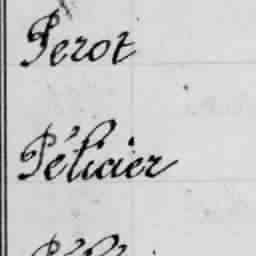 Perot
Pélicier